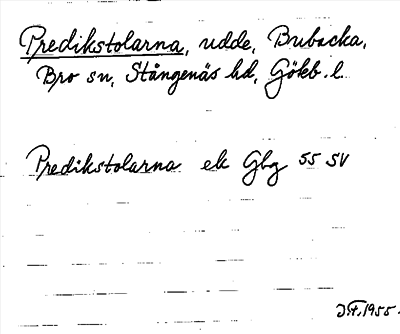 Predikstolarna, udde, Bubacka,
Bro sn, Stångenäs hd, Göteb. l.
Predikstolarna ek Gbg 55 SV
1955.